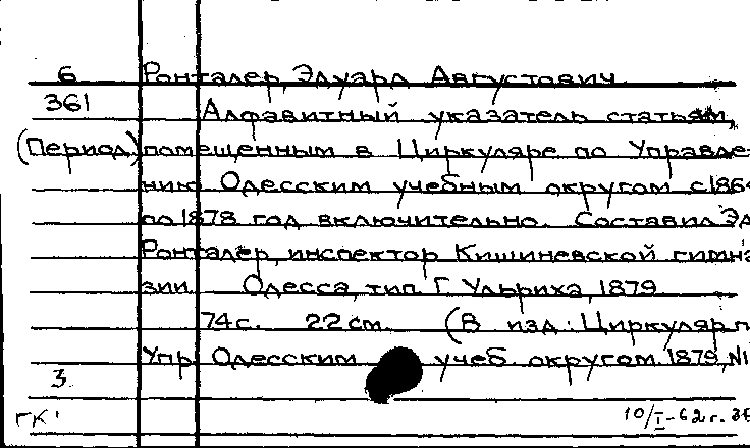 6 Ронталер, Эдуард Августович
361 Алфавитный указатель статьям,
(Период) помещенным в Циркуляре по Управле-
нию Одесским учебным округом с 1864
по 1878 год включительно. Составил Эд.
Ронталер, инспектор Кишиневской гимна-
зии. Одесса, тип. Г. Ульриха, 1879.
74 с. 22 см. (В изд.: Циркуляр п
Упр. Одесским учеб. округом. 1879, №1
3
ГК
10/I-62 г.